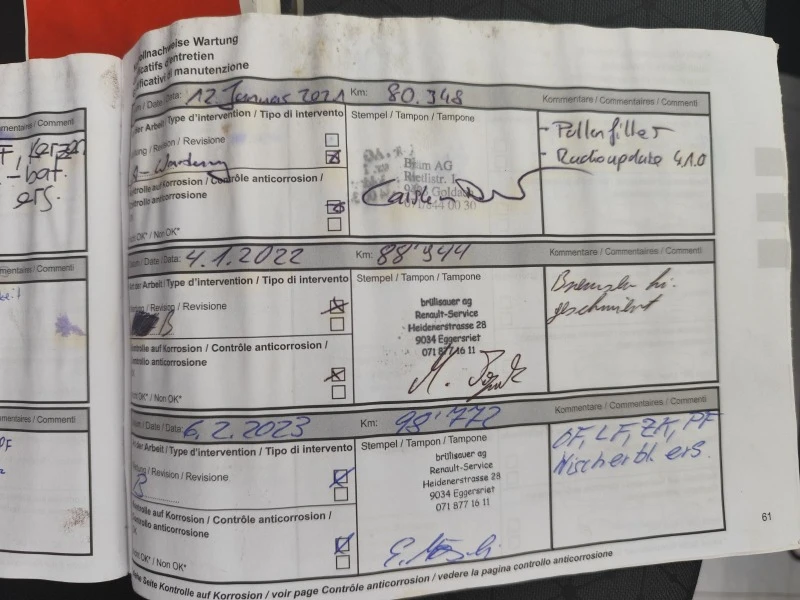 mentaires / Commenti
F, Kerzen
-bat.
ers.
mentaires / Commenti
mentaires / Commenti
DF
ollnachweise Wartung
ificatifs d'entretien
ificativi di manutenzione
m / Date / Data: 12. Januar 2021 Km: 80.348 Kommentare / Commentaires / Commenti
der Arbeit / Type d'intervention / Tipo di intervento
Stempel / Tampon / Tampone
- Pollenfilter
- Radioupdate 4.1.0
ung / Revision / Revisione
A-Wartung
ntrolle auf Korrosion / Contrôle anticorrosion /
ontrollo anticorrosione
OK* / Non OK*
AG
Rietlistr. 1
Goldach
00 30
um / Date / Data: 4.1.2022 Km: 88'944 Kommentare / Commentaires / Commenti
der Arbeit / Type d'intervention / Tipo di intervento
Stempel / Tampon / Tampone
Bremsen hi.
geschmiert
ung / Revision / Revisione
B
brüllsauer ag
Renault-Service
Heidenerstrasse 28
9034 Eggersriet
071 877 16 11
ntrolle auf Korrosion / Contrôle anticorrosion /
ontrollo anticorrosione
OK* / Non OK*
um / Date / Data: 6.2.2023 Km: 98'772 Kommentare / Commentaires / Commenti
der Arbeit / Type d'intervention / Tipo di intervento
Stempel / Tampon / Tampone
ÖF, LF, ZK, PF
Wischerbl. ers.
ung / Revision / Revisione
B
brüllsauer ag
Renault-Service
Heidenerstrasse 28
9034 Eggersriet
071 877 16 11
ntrolle auf Korrosion / Contrôle anticorrosion /
ontrollo anticorrosione
OK* / Non OK*
he Seite Kontrolle auf Korrosion / voir page Contrôle anticorrosion / vedere la pagina controllo anticorrosione
61